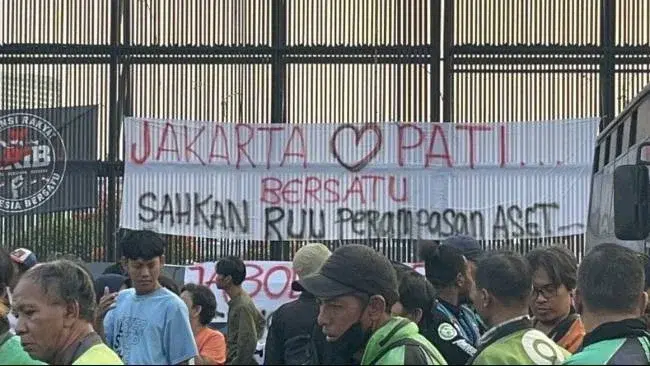 JAKARTA ♡ PATI...
BERSATU
SAHKAN RUU PERAMPASAN ASET
NSI RAKYA
ESIA BERSATU